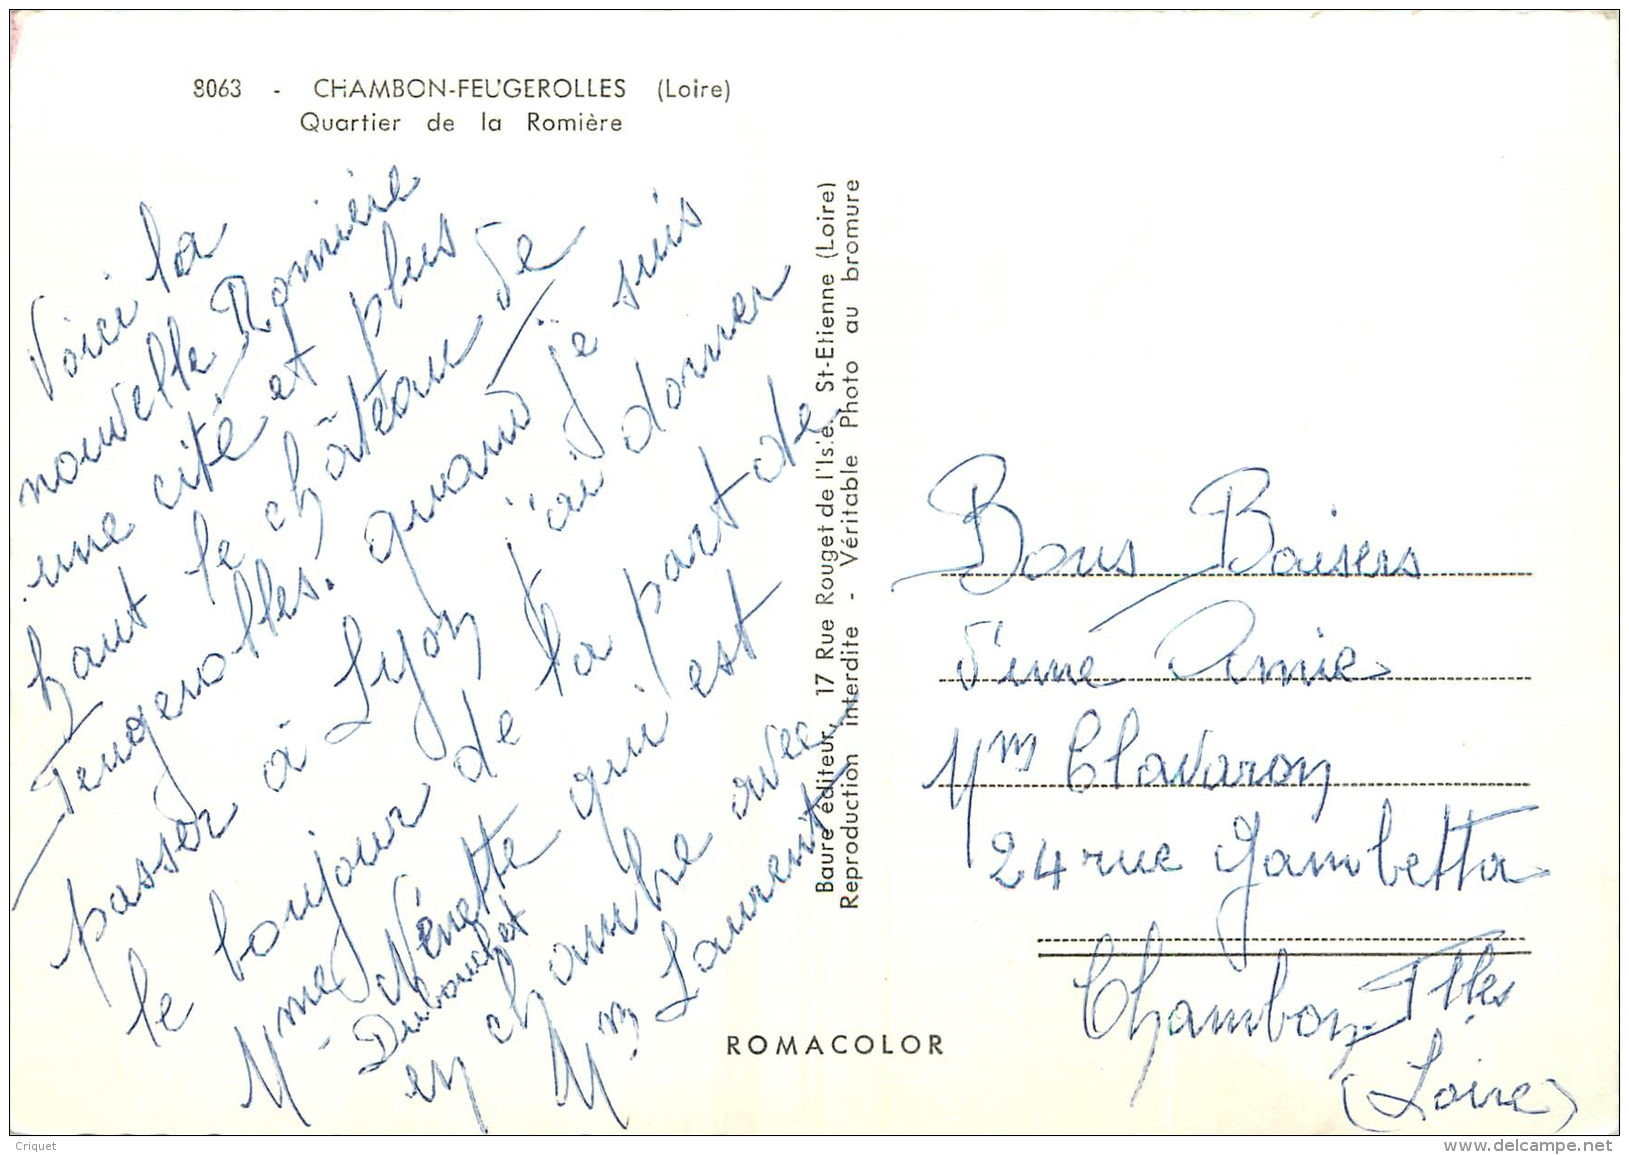 8063 - CHAMBON-FEUGEROLLES (Loire)
Quartier de la Romière
Voici la
nouvelle Romière
une cité et plus
haut le château de
Feugerolles. quand je suis
passer à Lyon j'ai donner
le boujour de la part de
Mme Nénette qui est
Dubouchet
en chambre avec
Mm Laurent
Baure éditeur, 17 Rue Rouget de l'Isle. St-Etienne (Loire)
Reproduction interdite - Véritable Photo au bromure
ROMACOLOR
Bons Baisers
d'une Amie
Mm Clavaron
24 rue Gambetta
Chambon-Flles
(Loire)
Criquet
www.delcampe.net